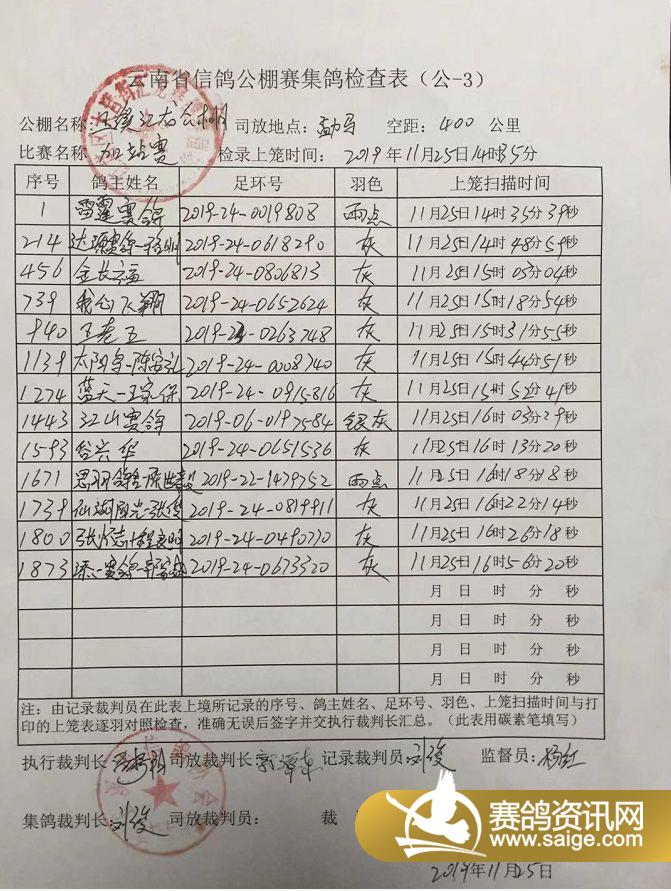 云南省信鸽公棚赛集鸽检查表（公-3）
公棚名称: 玉溪汇龙公棚 司放地点: 勐马 空距: 400 公里
比赛名称: 加站赛 检录上笼时间: 2019年11月25日14时35分
序号 鸽主姓名 足环号 羽色 上笼扫描时间
1 雷霆赛鸽 2019-24-0019808 雨点 11月25日14时35分39秒
214 2019-24-0618290 灰 11月25日14时48分59秒
456 金长福 2019-24-0806813 灰 11月25日15时03分04秒
739 我心飞翔 2019-24-0652624 灰 11月25日15时18分54秒
940 王老五 2019-24-0263748 灰 11月25日15时31分55秒
1139 太阳鸟-陈安礼 2019-24-0008740 灰 11月25日15时44分51秒
1274 蓝天-王家保 2019-24-0915816 灰 11月25日15时52分41秒
1443 江山赛鸽 2019-06-0197584 银灰 11月25日16时03分29秒
1593 兴华 2019-24-0651536 灰 11月25日16时13分20秒
1671 2019-22-1479752 雨点 11月25日16时18分18秒
1739 2019-24-0819911 灰 11月25日16时22分14秒
1800 2019-24-0490770 灰 11月25日16时26分18秒
1873 2019-24-0673320 灰 11月25日16时56分20秒
月 日 时 分 秒
月 日 时 分 秒
月 日 时 分 秒
月 日 时 分 秒
注: 由记录裁判员在此表上境所记录的序号、鸽主姓名、足环号、羽色、上笼扫描时间与打
印的上笼表逐羽对照检查，准确无误后签字并交执行裁判长汇总。（此表用碳素笔填写）
执行裁判长 司放裁判长 记录裁判员: 刘俊 监督员: 杨红
集鸽裁判长: 刘俊 司放裁判员: 裁
赛鸽资讯网
www.saige.com
2019年11月25日